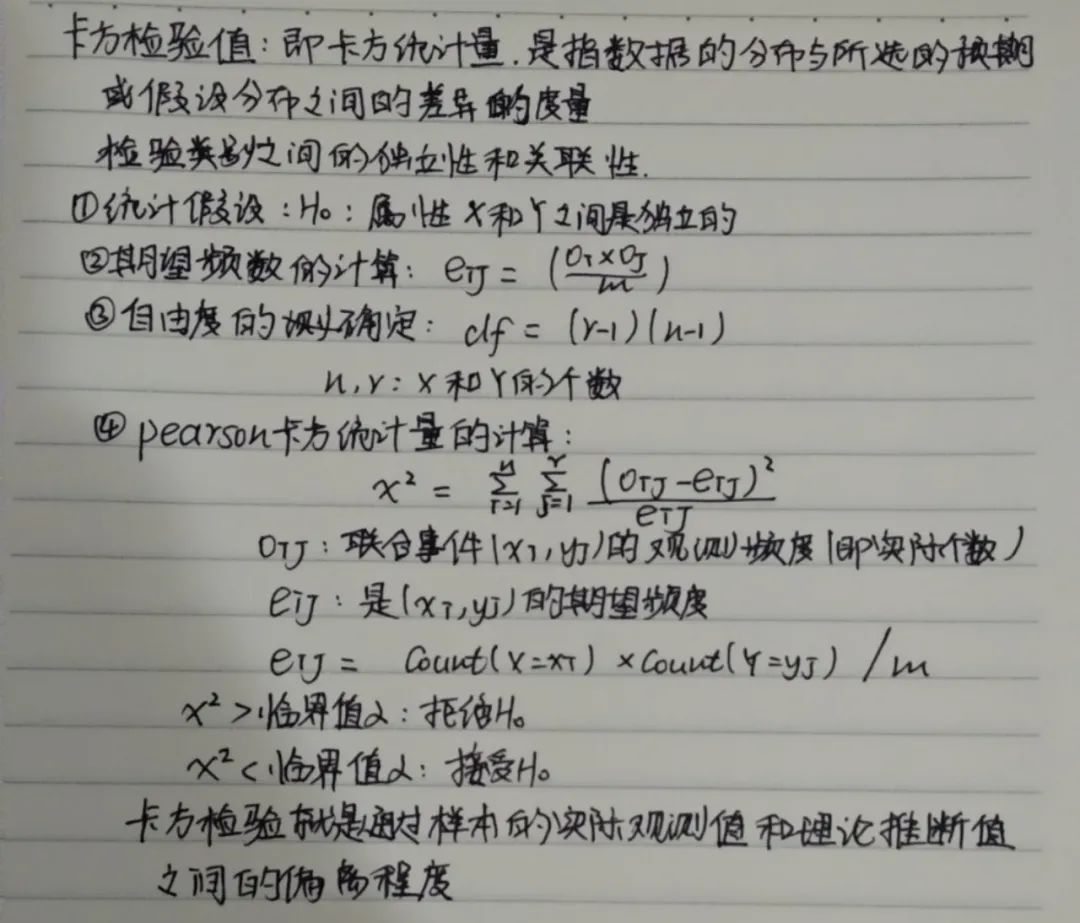 卡方检验值：即卡方统计量.是指数据的分布与所选的预期
或假设分布之间的差异的度量
检验类别之间的独立性和关联性.
①统计假设：H₀：属性X和Y之间是独立的
②期望频数的计算：eIJ = (OI×OJ/m)
③自由度的确定：df = (r-1)(n-1)
n,r：X和Y的个数
④pearson卡方统计量的计算：
x² = Σ(I=1..n) Σ(J=1..r) (OIJ-eIJ)²/eIJ
OIJ：联合事件(xI,yJ)的观测频度(即实际个数)
eIJ：是(xI,yJ)的期望频度
eIJ = Count(X=xI)×Count(Y=yJ)/m
x²>临界值α：拒绝H₀
x²<临界值α：接受H₀
卡方检验就是通过样本的实际观测值和理论推断值
之间的偏离程度